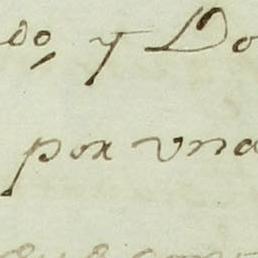 do, y Do
por vna